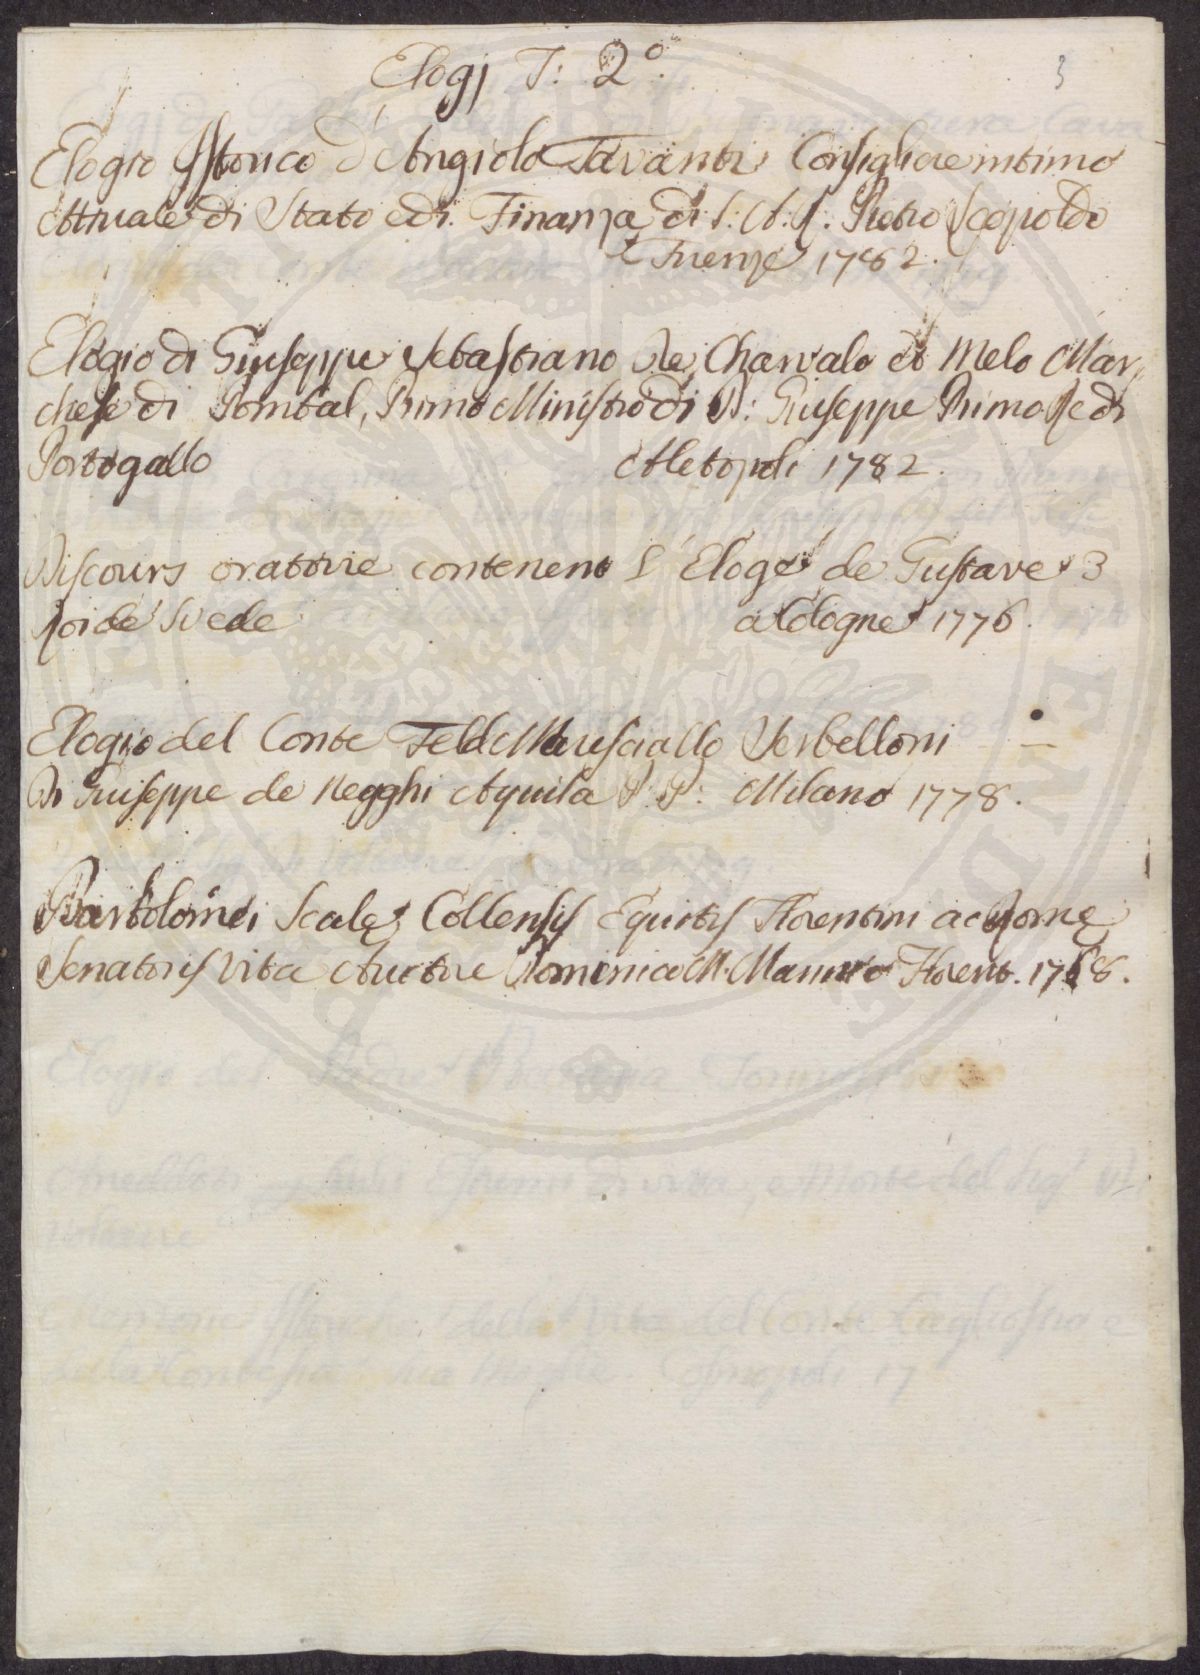 Elogj T: 2°.
3
Elogio Istorico d'Angiolo Tavanti Consigliere intimo
Attuale di Stato e di Finanza di S: A. R. Pietro Leopoldo
Firenze 1782.
Elogio di Giuseppe Sebastiano de Charvalo et Melo Mar,,
chese di Pombal, Primo Ministro di D: Giuseppe Primo Re di
Portogallo Aletopoli 1782.
Discours oratorie contenent L'Eloge de Gustave 3
Roi de Svede a Cologne 1776.
Elogio del Conte Feld Maresciallo Serbelloni
Di Giuseppe de Necghi Aquila P. P: Milano 1778.
Bartolomei Scale Collensis Equitis Florentini ac Rome
Senatoris Vita Auctore Dominico M. Mannio Florent. 1768.